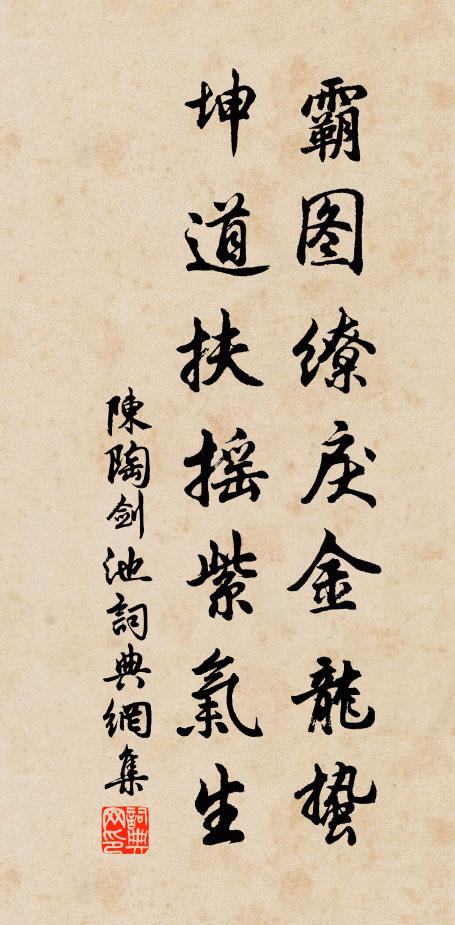 霸图缭戾金龍蛰
坤道扶摇紫氣生
陳陶剑池詞典網集
詞典网印